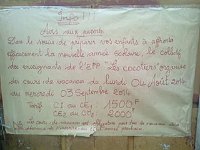 Info !!!
Avis aux parents
Dans le souci de préparer vos enfants à affronter
efficacement la nouvelle année scolaire, le collège
des enseignants de l'EPP "Les Cocotiers" organise
des cours de vacances du lundi 04 Août 2014
au mercredi 03 Septembre 2014
Tarif CI au CE1 1500F
CE2 au CM2 2000F